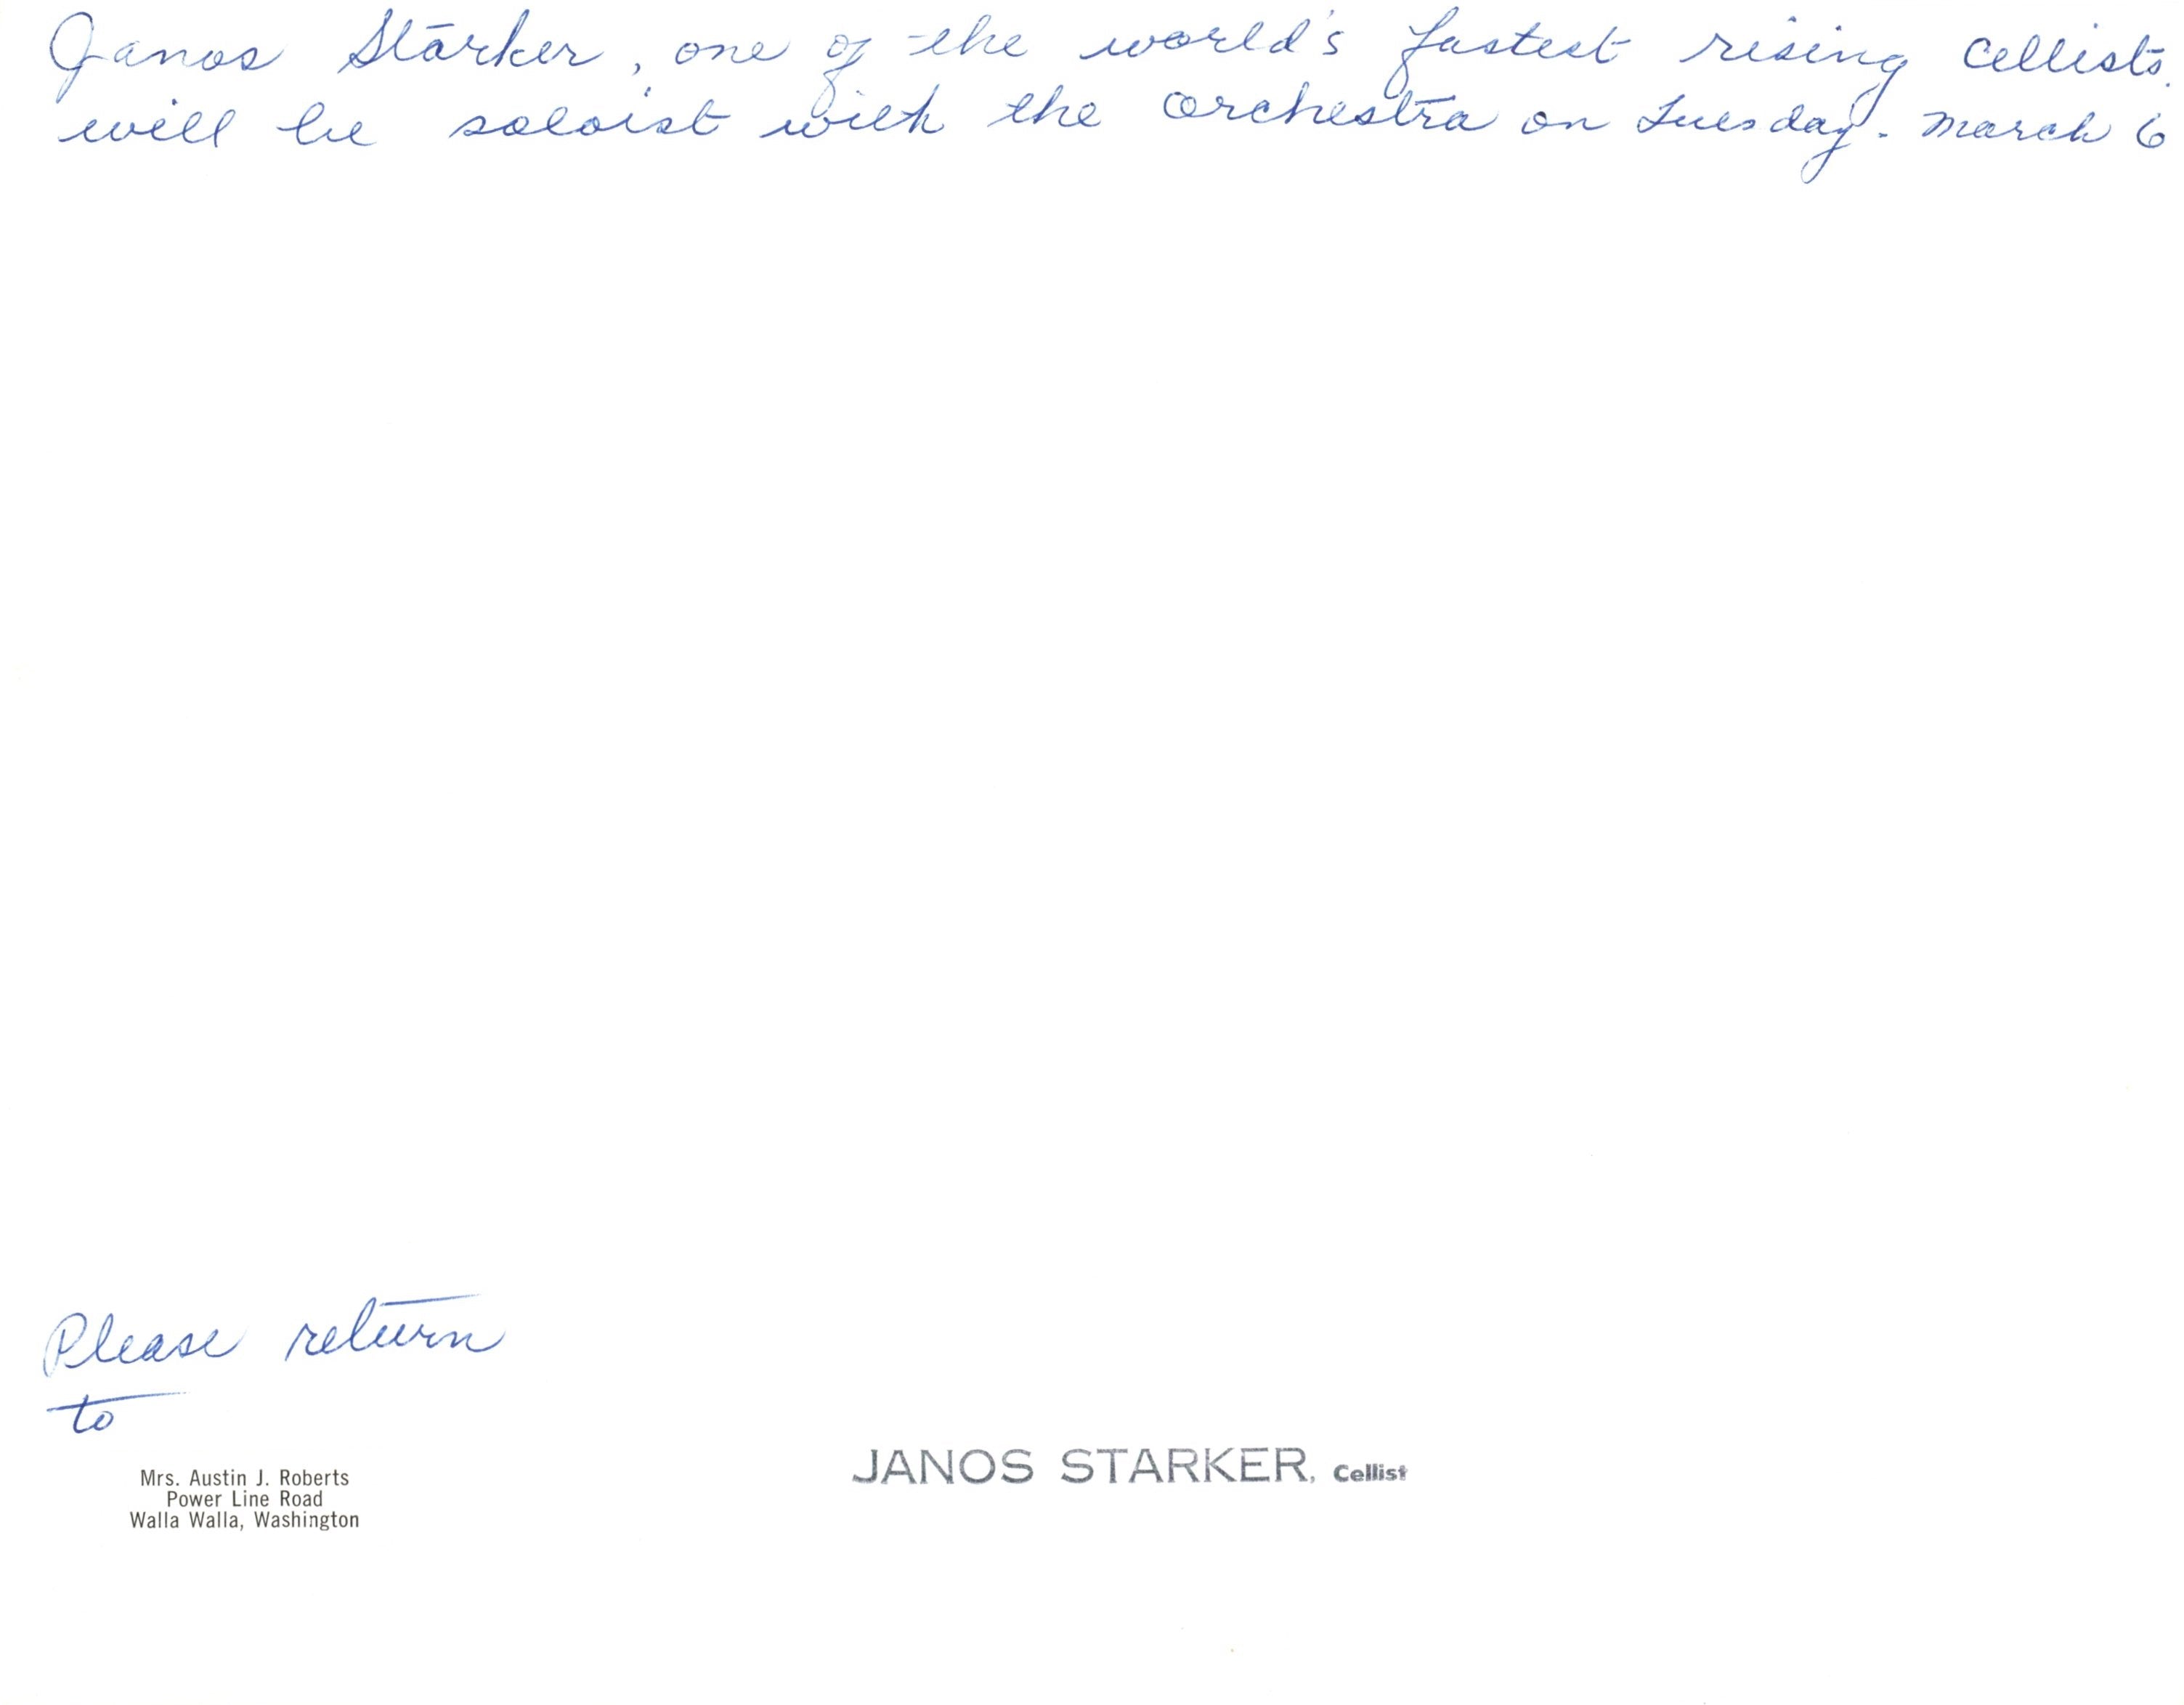 Janos Starker, one of the world's fastest rising cellists,
will be soloist with the orchestra on Tuesday. March 6
Please return
to
Mrs. Austin J. Roberts
Power Line Road
Walla Walla, Washington
JANOS STARKER, Cellist